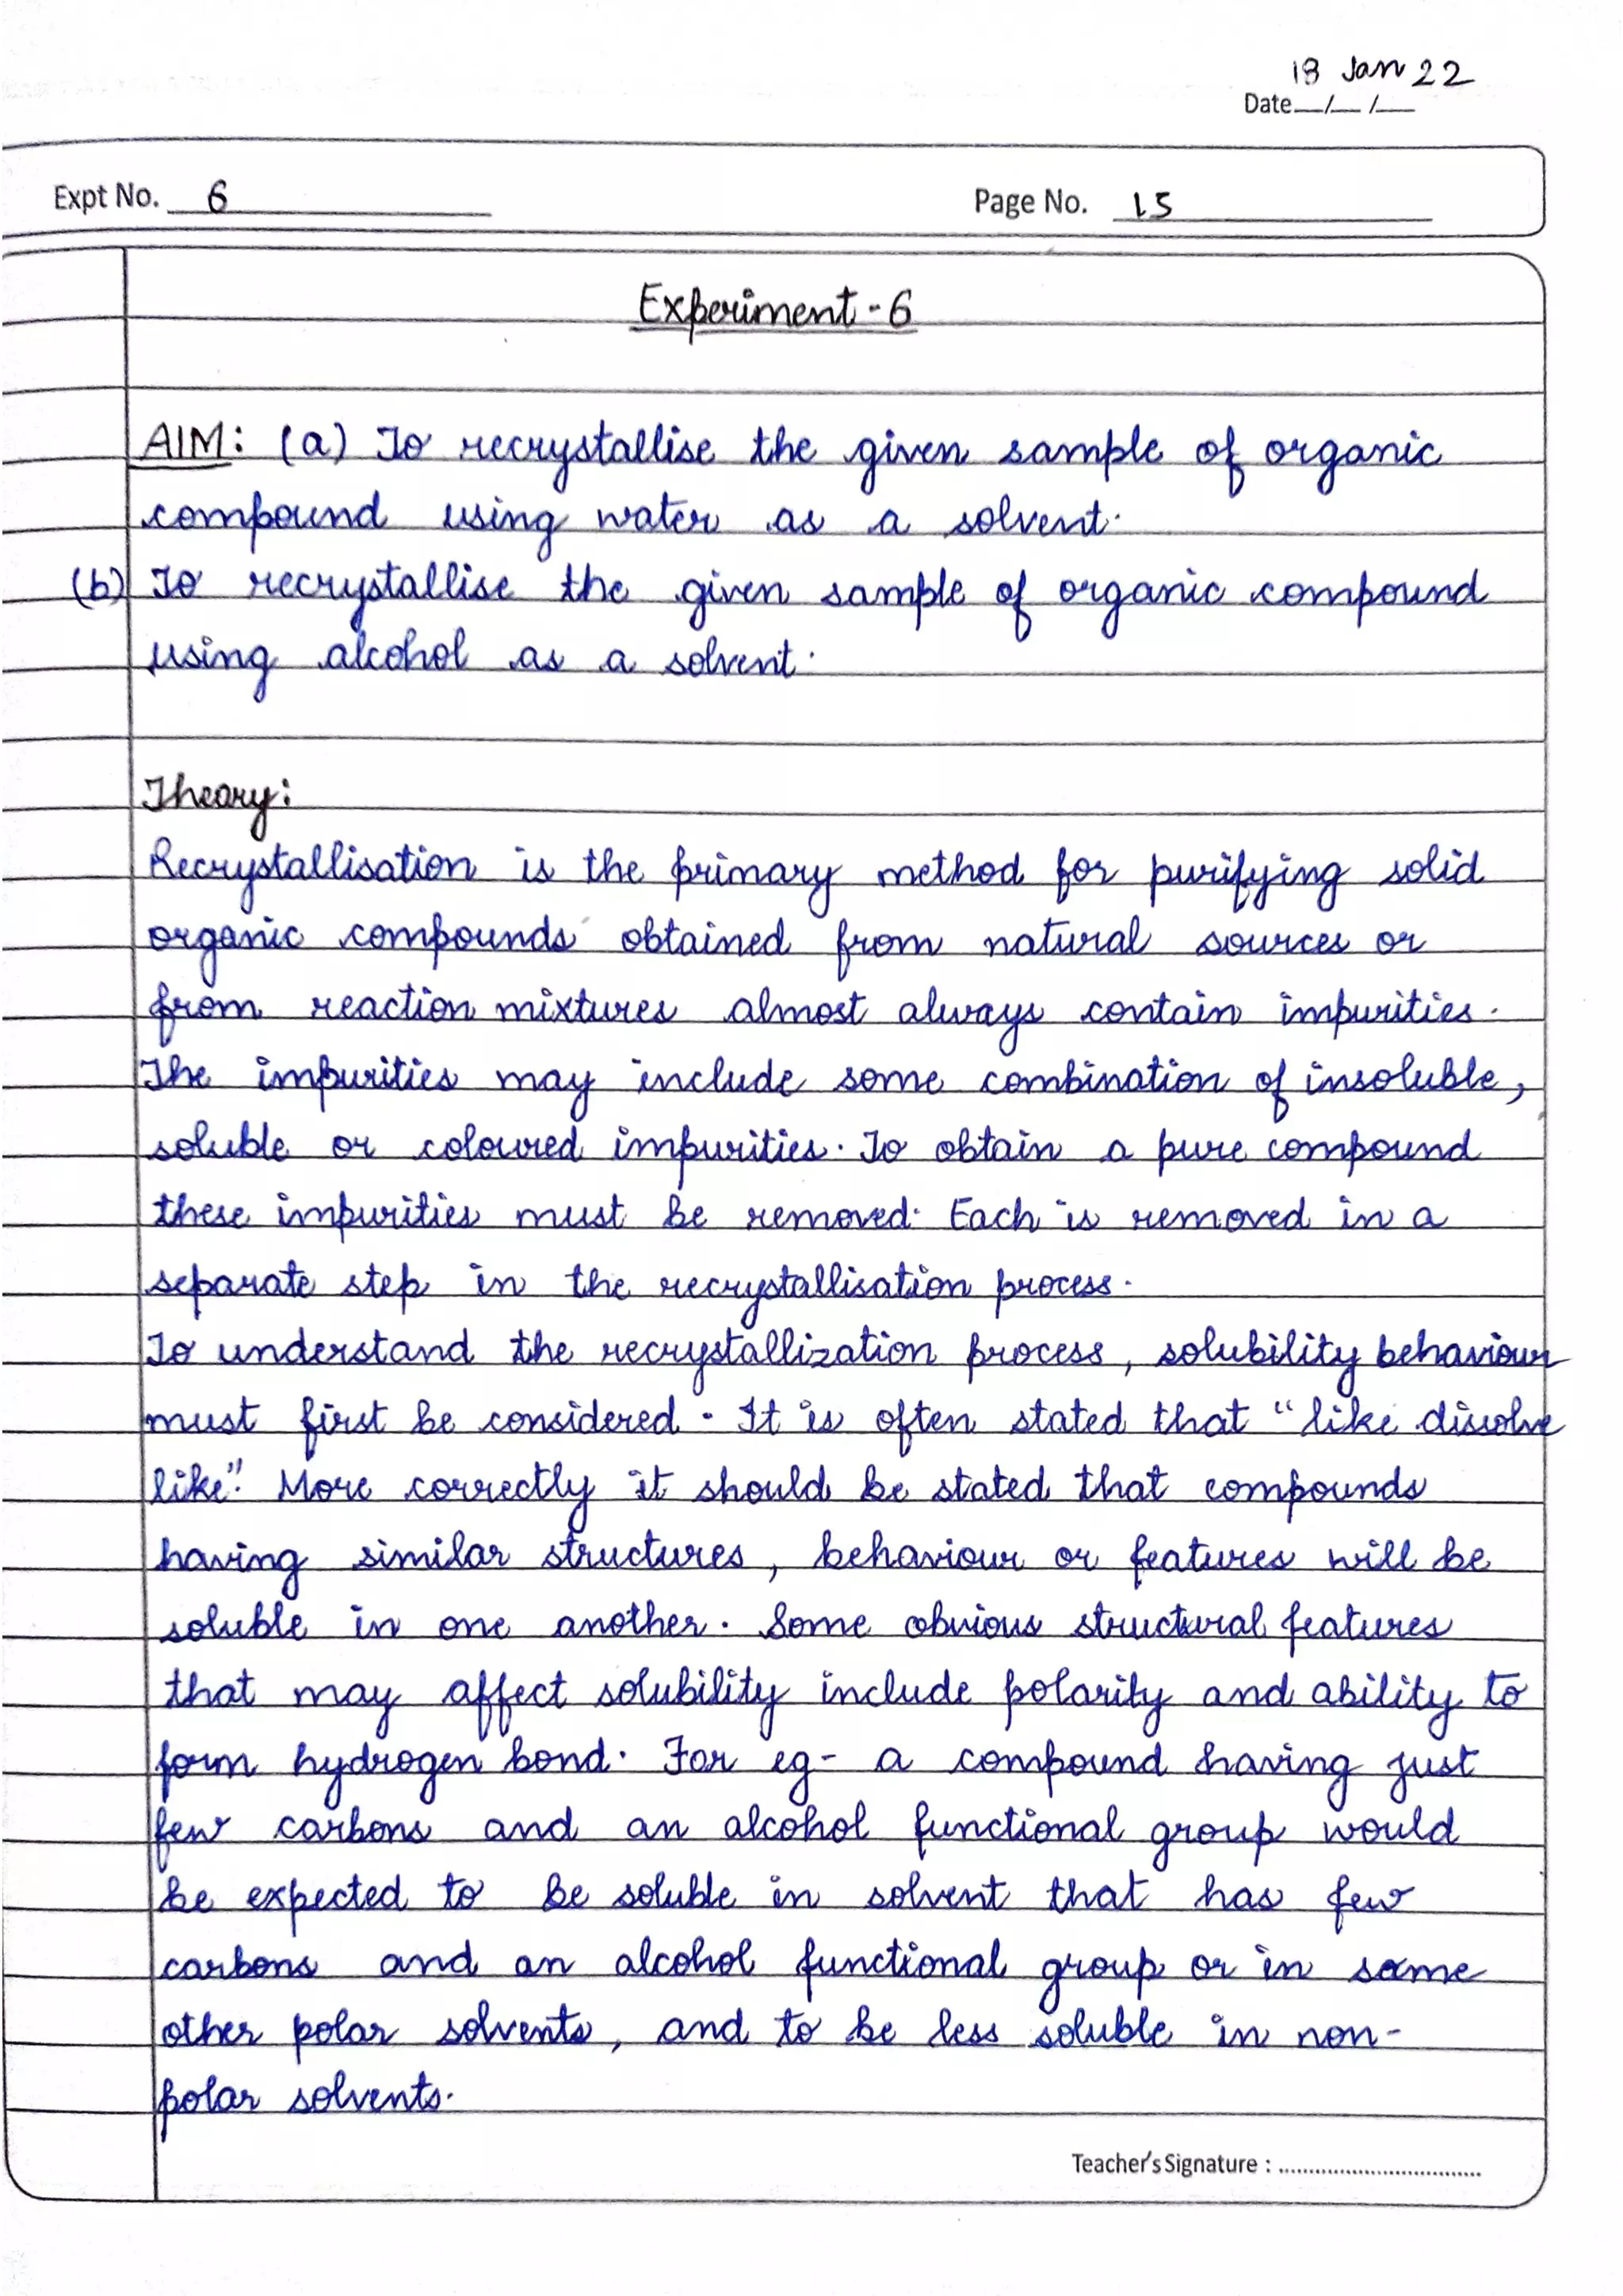 18 Jan 22
Date__/__/__
Expt No. 6
Page No. 15
Experiment - 6
AIM: (a) To recrystallise the given sample of organic
compound using water as a solvent.
(b) To recrystallise the given sample of organic compound
using alcohol as a solvent.
Theory:
Recrystallisation is the primary method for purifying solid
organic compounds obtained from natural sources or
from reaction mixtures almost always contain impurities.
The impurities may include some combination of insoluble,
soluble or coloured impurities. To obtain a pure compound
these impurities must be removed. Each is removed in a
separate step in the recrystallisation process.
To understand the recrystallization process, solubility behaviour
must first be considered. It is often stated that "like dissolve
like". More correctly it should be stated that compounds
having similar structures, behaviour or features will be
soluble in one another. Some obvious structural features
that may affect solubility include polarity and ability to
form hydrogen bond. For eg- a compound having just
few carbons and an alcohol functional group would
be expected to be soluble in solvent that has few
carbons and an alcohol functional group or in some
other polar solvents, and to be less soluble in non-
polar solvents.
Teacher's Signature : ................................